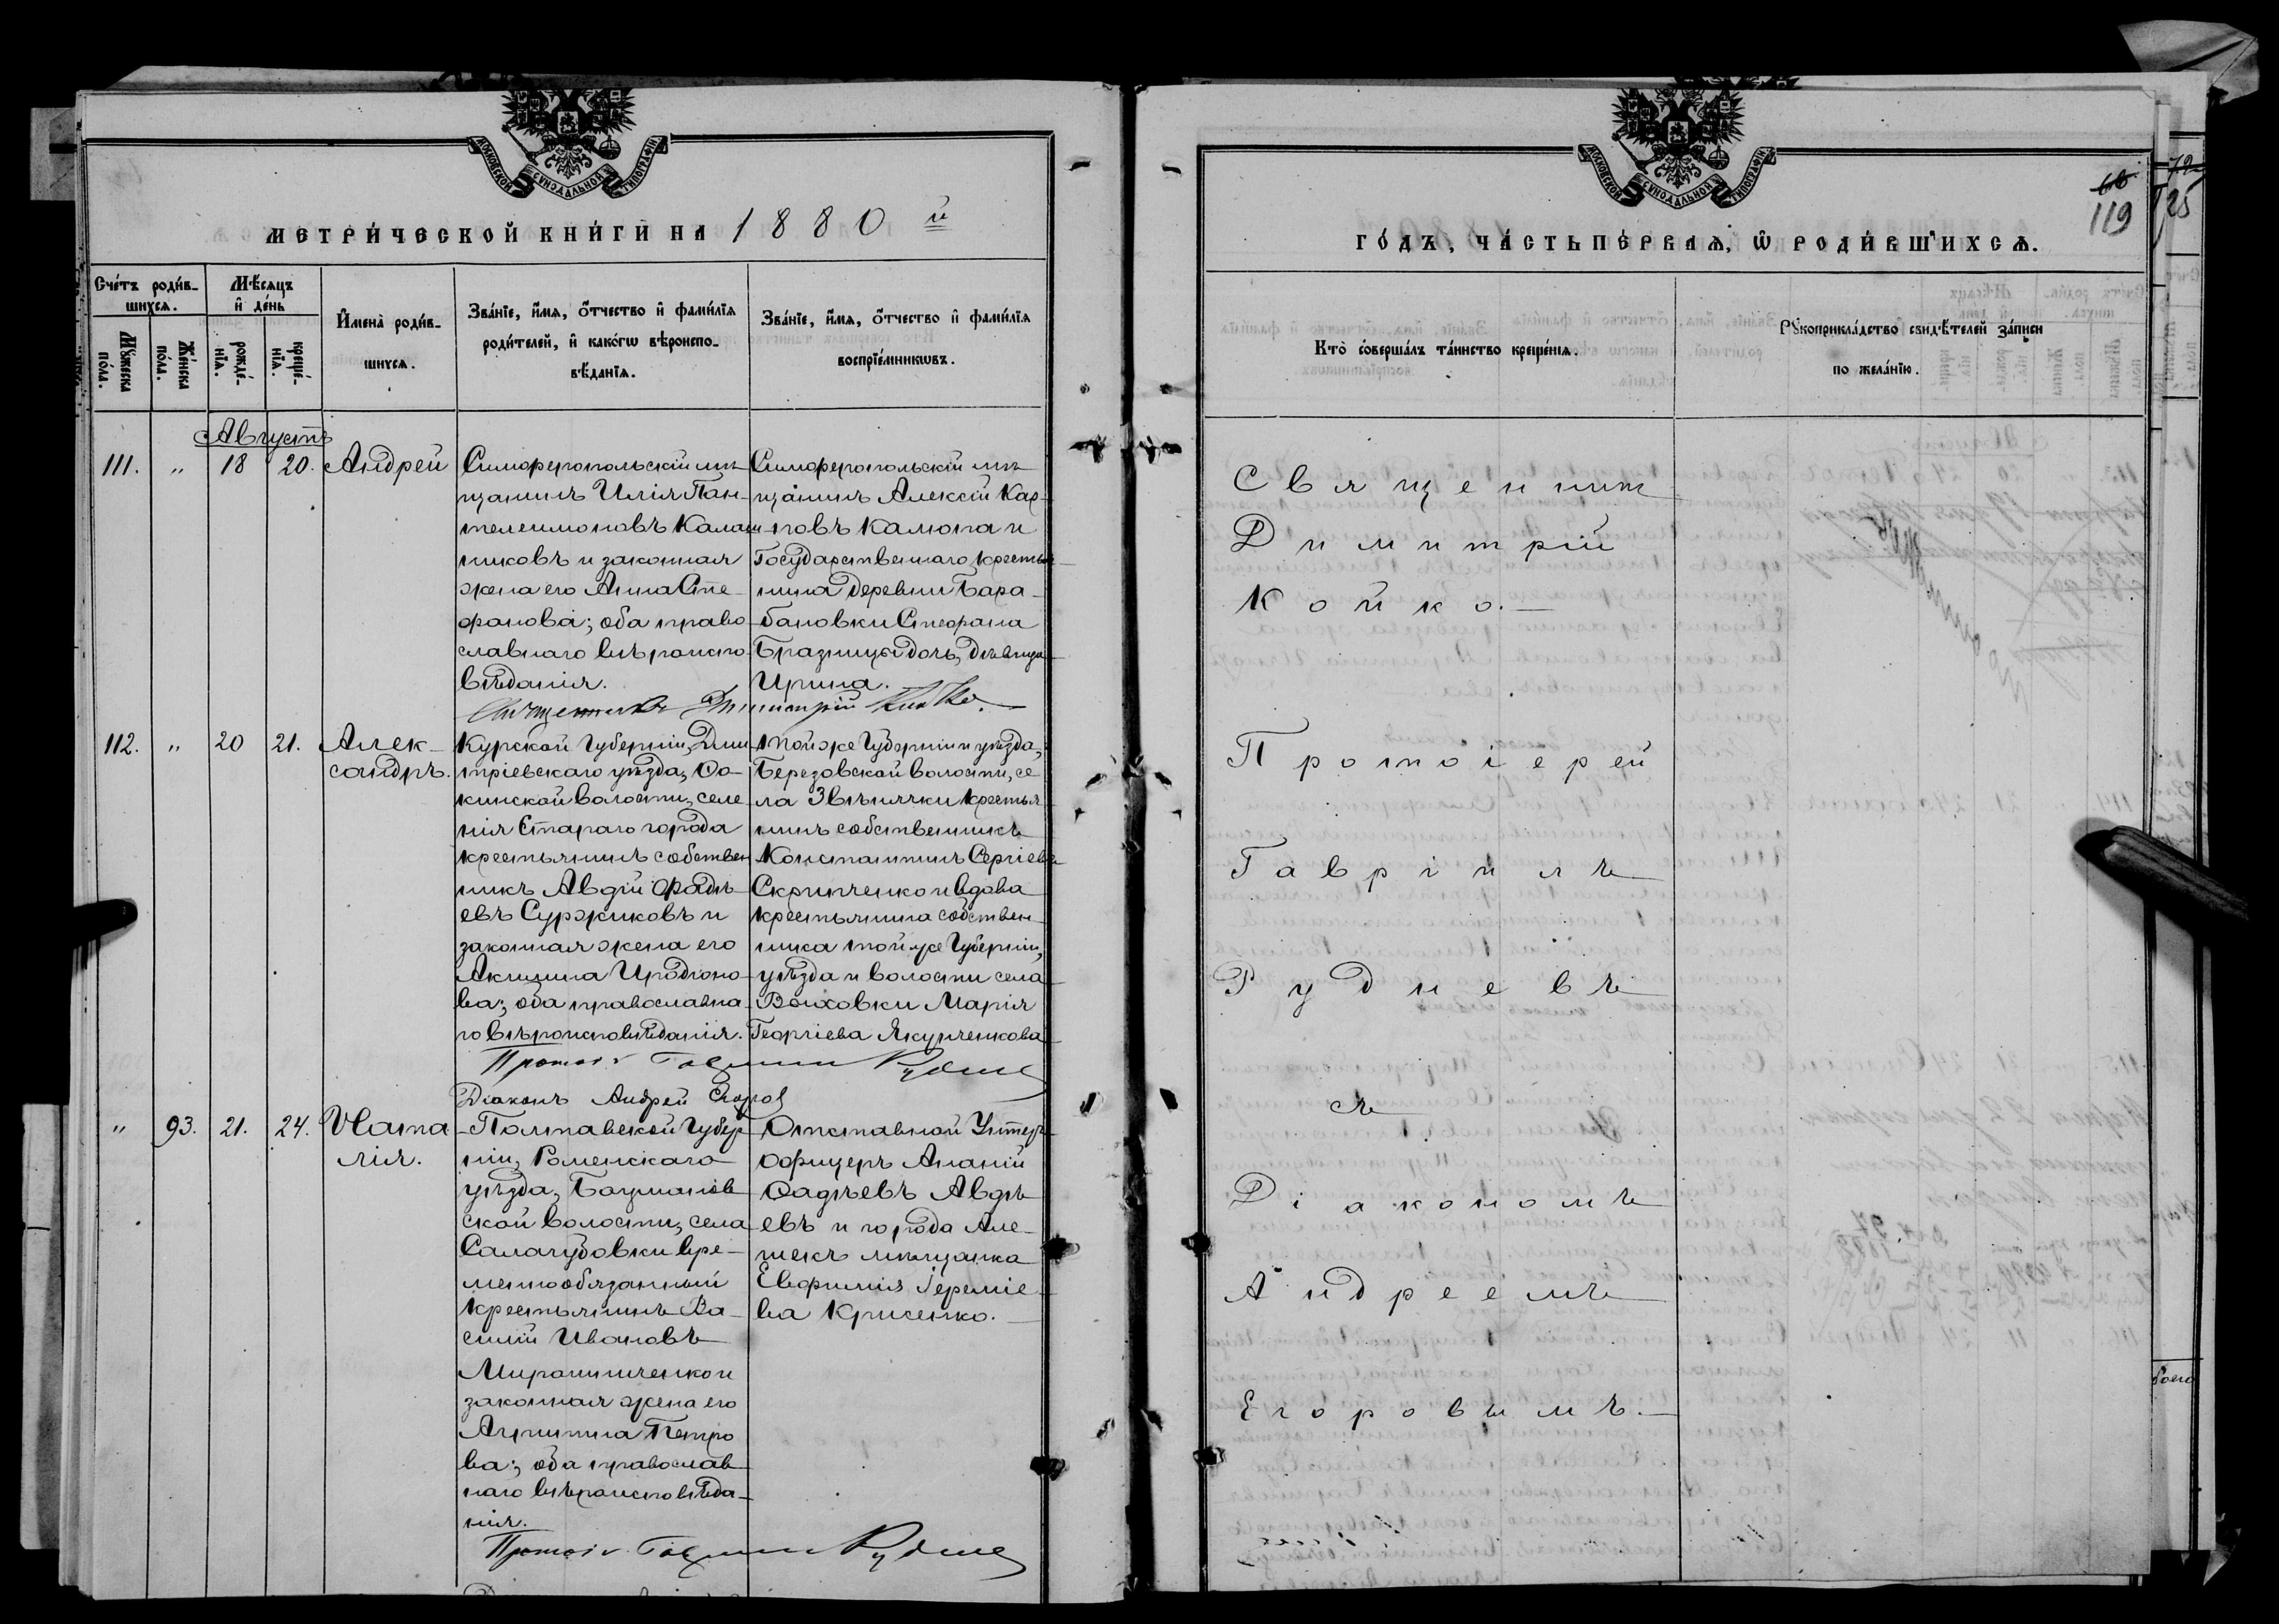 МОСКОВСКОЙ СѴНОДАЛЬНОЙ ТИПОГРАФІИ
МЕТРИ́ЧЕСКОЙ КНИ́ГИ НА 1880 й
Сче́тъ роди́в-
шихсѧ.
Мѣ́сѧцъ
и҆ де́нь
Мꙋ́жеска
по́ла.
Же́нска
по́ла.
рожде́-
нїѧ.
креще́-
нїѧ.
И҆мена̀ роди́в-
шихсѧ.
Зва́нїе, и҆́мѧ, ѻ҆́тчество и҆ фами́лїѧ
роди́телей, и҆ како́гѡ вѣроиспо-
вѣ́данїѧ.
Зва́нїе, и҆́мѧ, ѻ҆́тчество и҆ фами́лїѧ
воспрїе́мникѡвъ.
Августъ
111. " 18 20. Андрей
Симферопольскій мѣ-
щанинъ Илія Пан-
телеимоновъ Калаш-
никовъ и законная
жена его Анна Сте-
фанова; оба право-
славнаго вѣроиспо-
вѣданія.
Симферопольскій мѣ-
щанинъ Алексій Кар-
повъ Калюпа и
Государственнаго крестья-
нина деревни Бара-
бановки Стефана
дочь, дѣвица
Ирина.
Священникъ Димитрій Койко.
112. " 20 21. Алек-
сандръ.
Курской Губерніи, Дми-
тріевскаго уѣзда,
волости, селе-
нія Стараго города
крестьянинъ собствен-
никъ Авдій Фадѣ-
евъ Суржиковъ и
законная жена его
Акилина Иродіоно-
ва; оба православна-
го вѣроисповѣданія.
той же Губерніи и уѣзда,
Березовской волости, се-
ла Звѣнячки крестья-
нинъ собственникъ
Константинъ Сергіевъ
Скрипченко и вдова
крестьянина собствен-
ника той же Губерніи,
уѣзда и волости села
Волховки Марія
Георгіева Якунченкова
Протоі. Гавріилъ Рудне
Діаконъ Андрей Егоров
" 93. 21. 24. Ната-
лія.
Полтавской Губер-
ніи, Роменскаго
уѣзда,
ской волости, села
Салогубовки вре-
менно обязанный
крестьянинъ Ва-
силій Ивановъ
Мирошниченко и
законная жена его
Агрипина Петро-
ва; оба православ-
наго вѣроисповѣда-
нія.
Отставной Унтеръ
Офицеръ Ананій
Фадѣевъ Авдѣ-
евъ и города Але-
шекъ мѣщанка
Евфимія Іереміе-
ва Крисенко.
Протоі. Гавріилъ Рудне
МОСКОВСКОЙ СѴНОДАЛЬНОЙ ТИПОГРАФІИ
119
ГО́ДЪ, ЧА́СТЬ ПЕ́РВАѦ, Ѡ҆ РОДИ́ВШИХСѦ.
Кто̀ соверша́лъ та́инство креще́нїѧ.
Рꙋкоприкла́дство свидѣ́телей за́писи
по жела́нїю.
Священникъ
Димитрій
Койко.
Протоіерей
Гавріилъ
Рудневъ
съ
Діакономъ
Андреемъ
Егоровымъ.